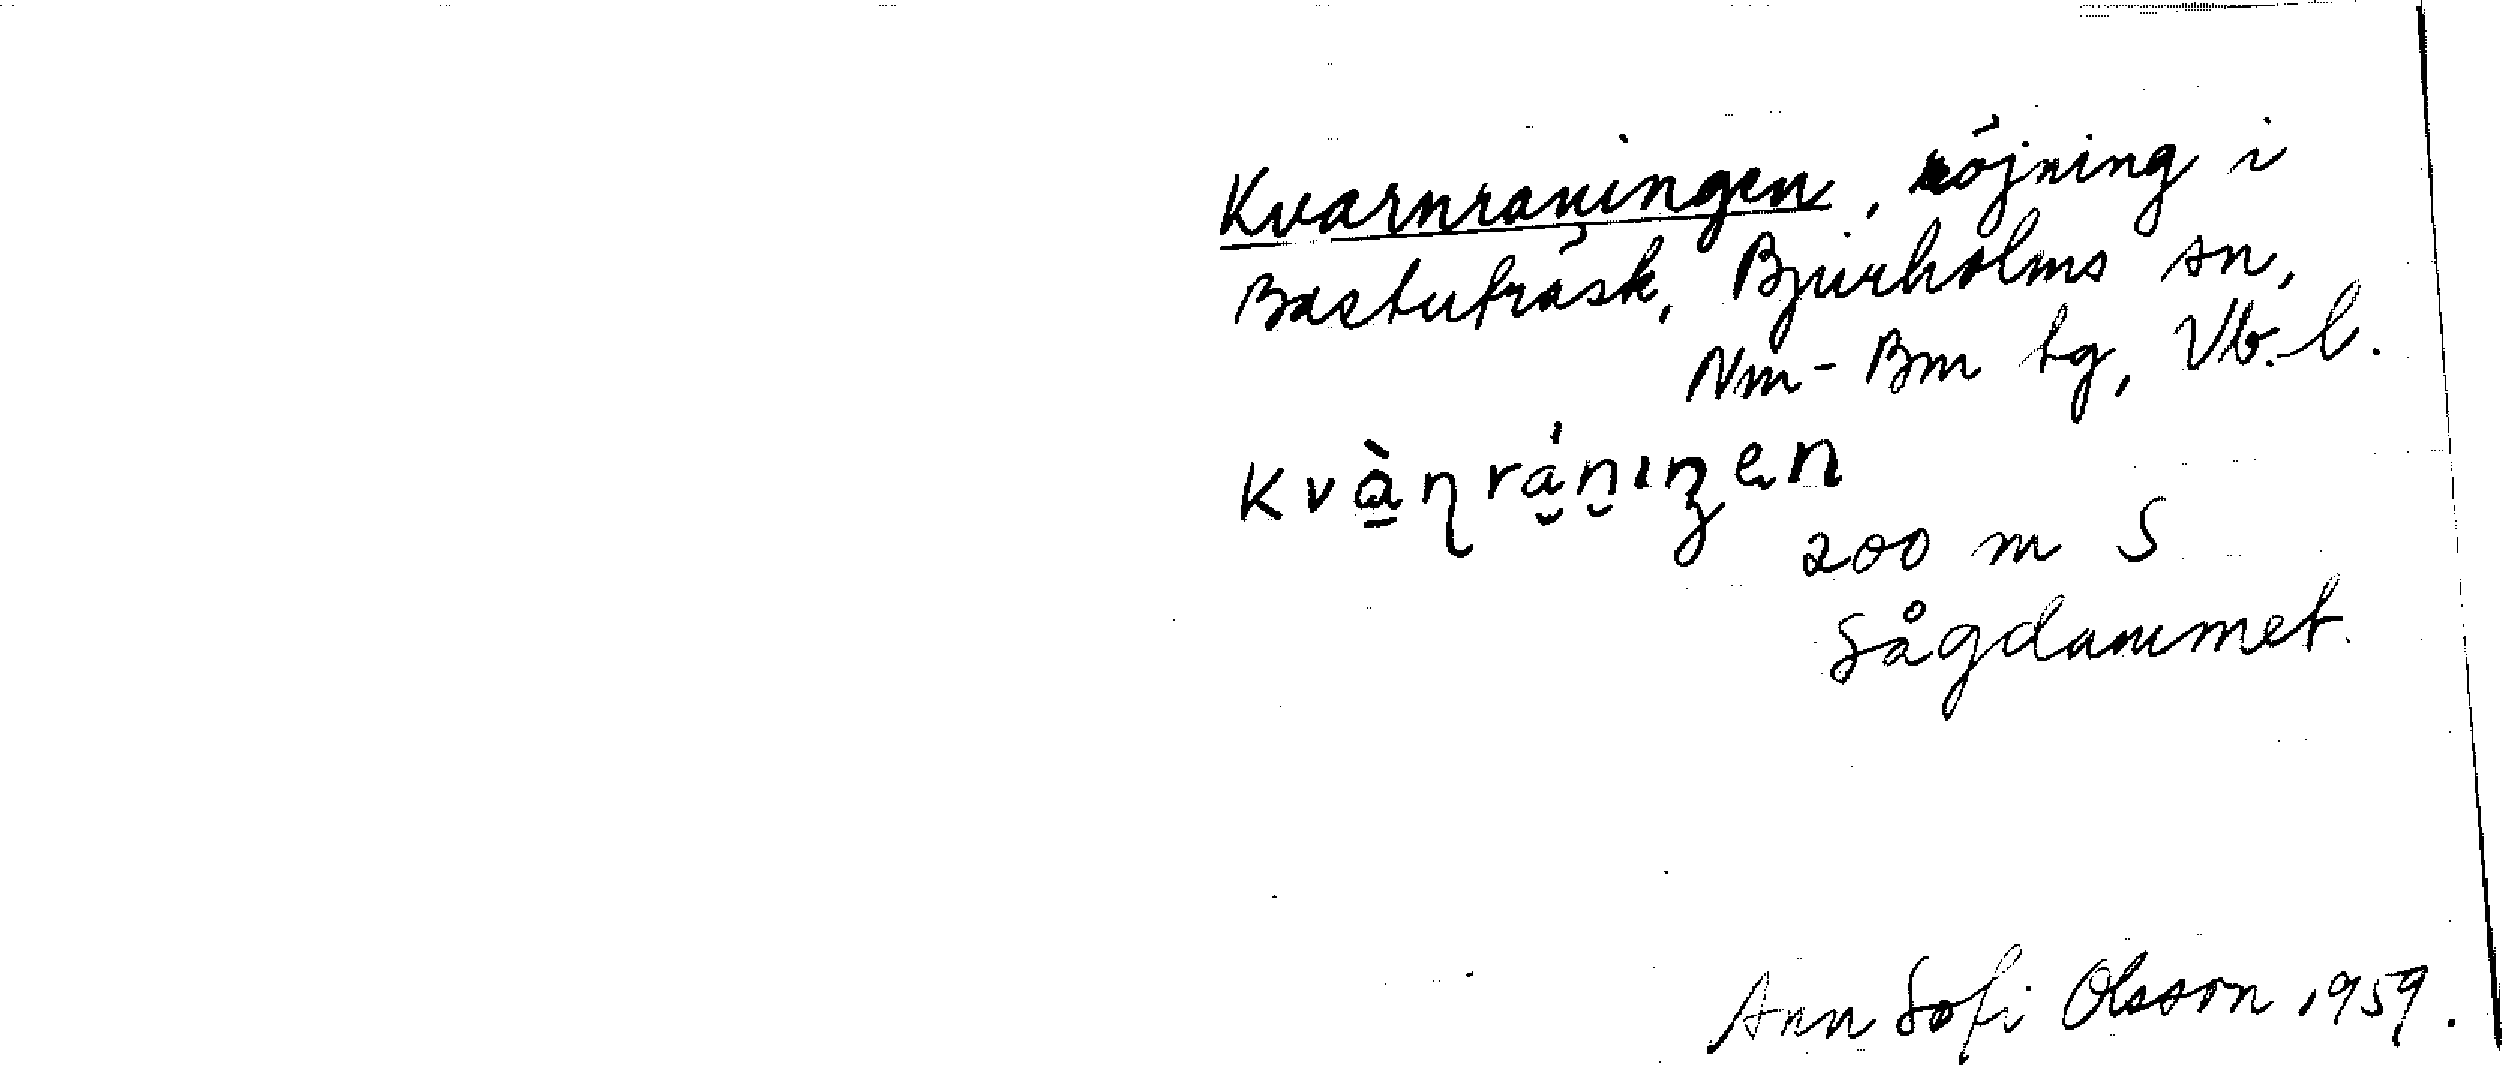 Kvarnraningen, röjning i
Bastuträsk, Bjurholms sn,
Nm-Bm tg, Vb. l.
kvà̱ɳrá̮n̮ıŋen
200 m S
Sågdammet.
Ann Sofi Olsson 1959.